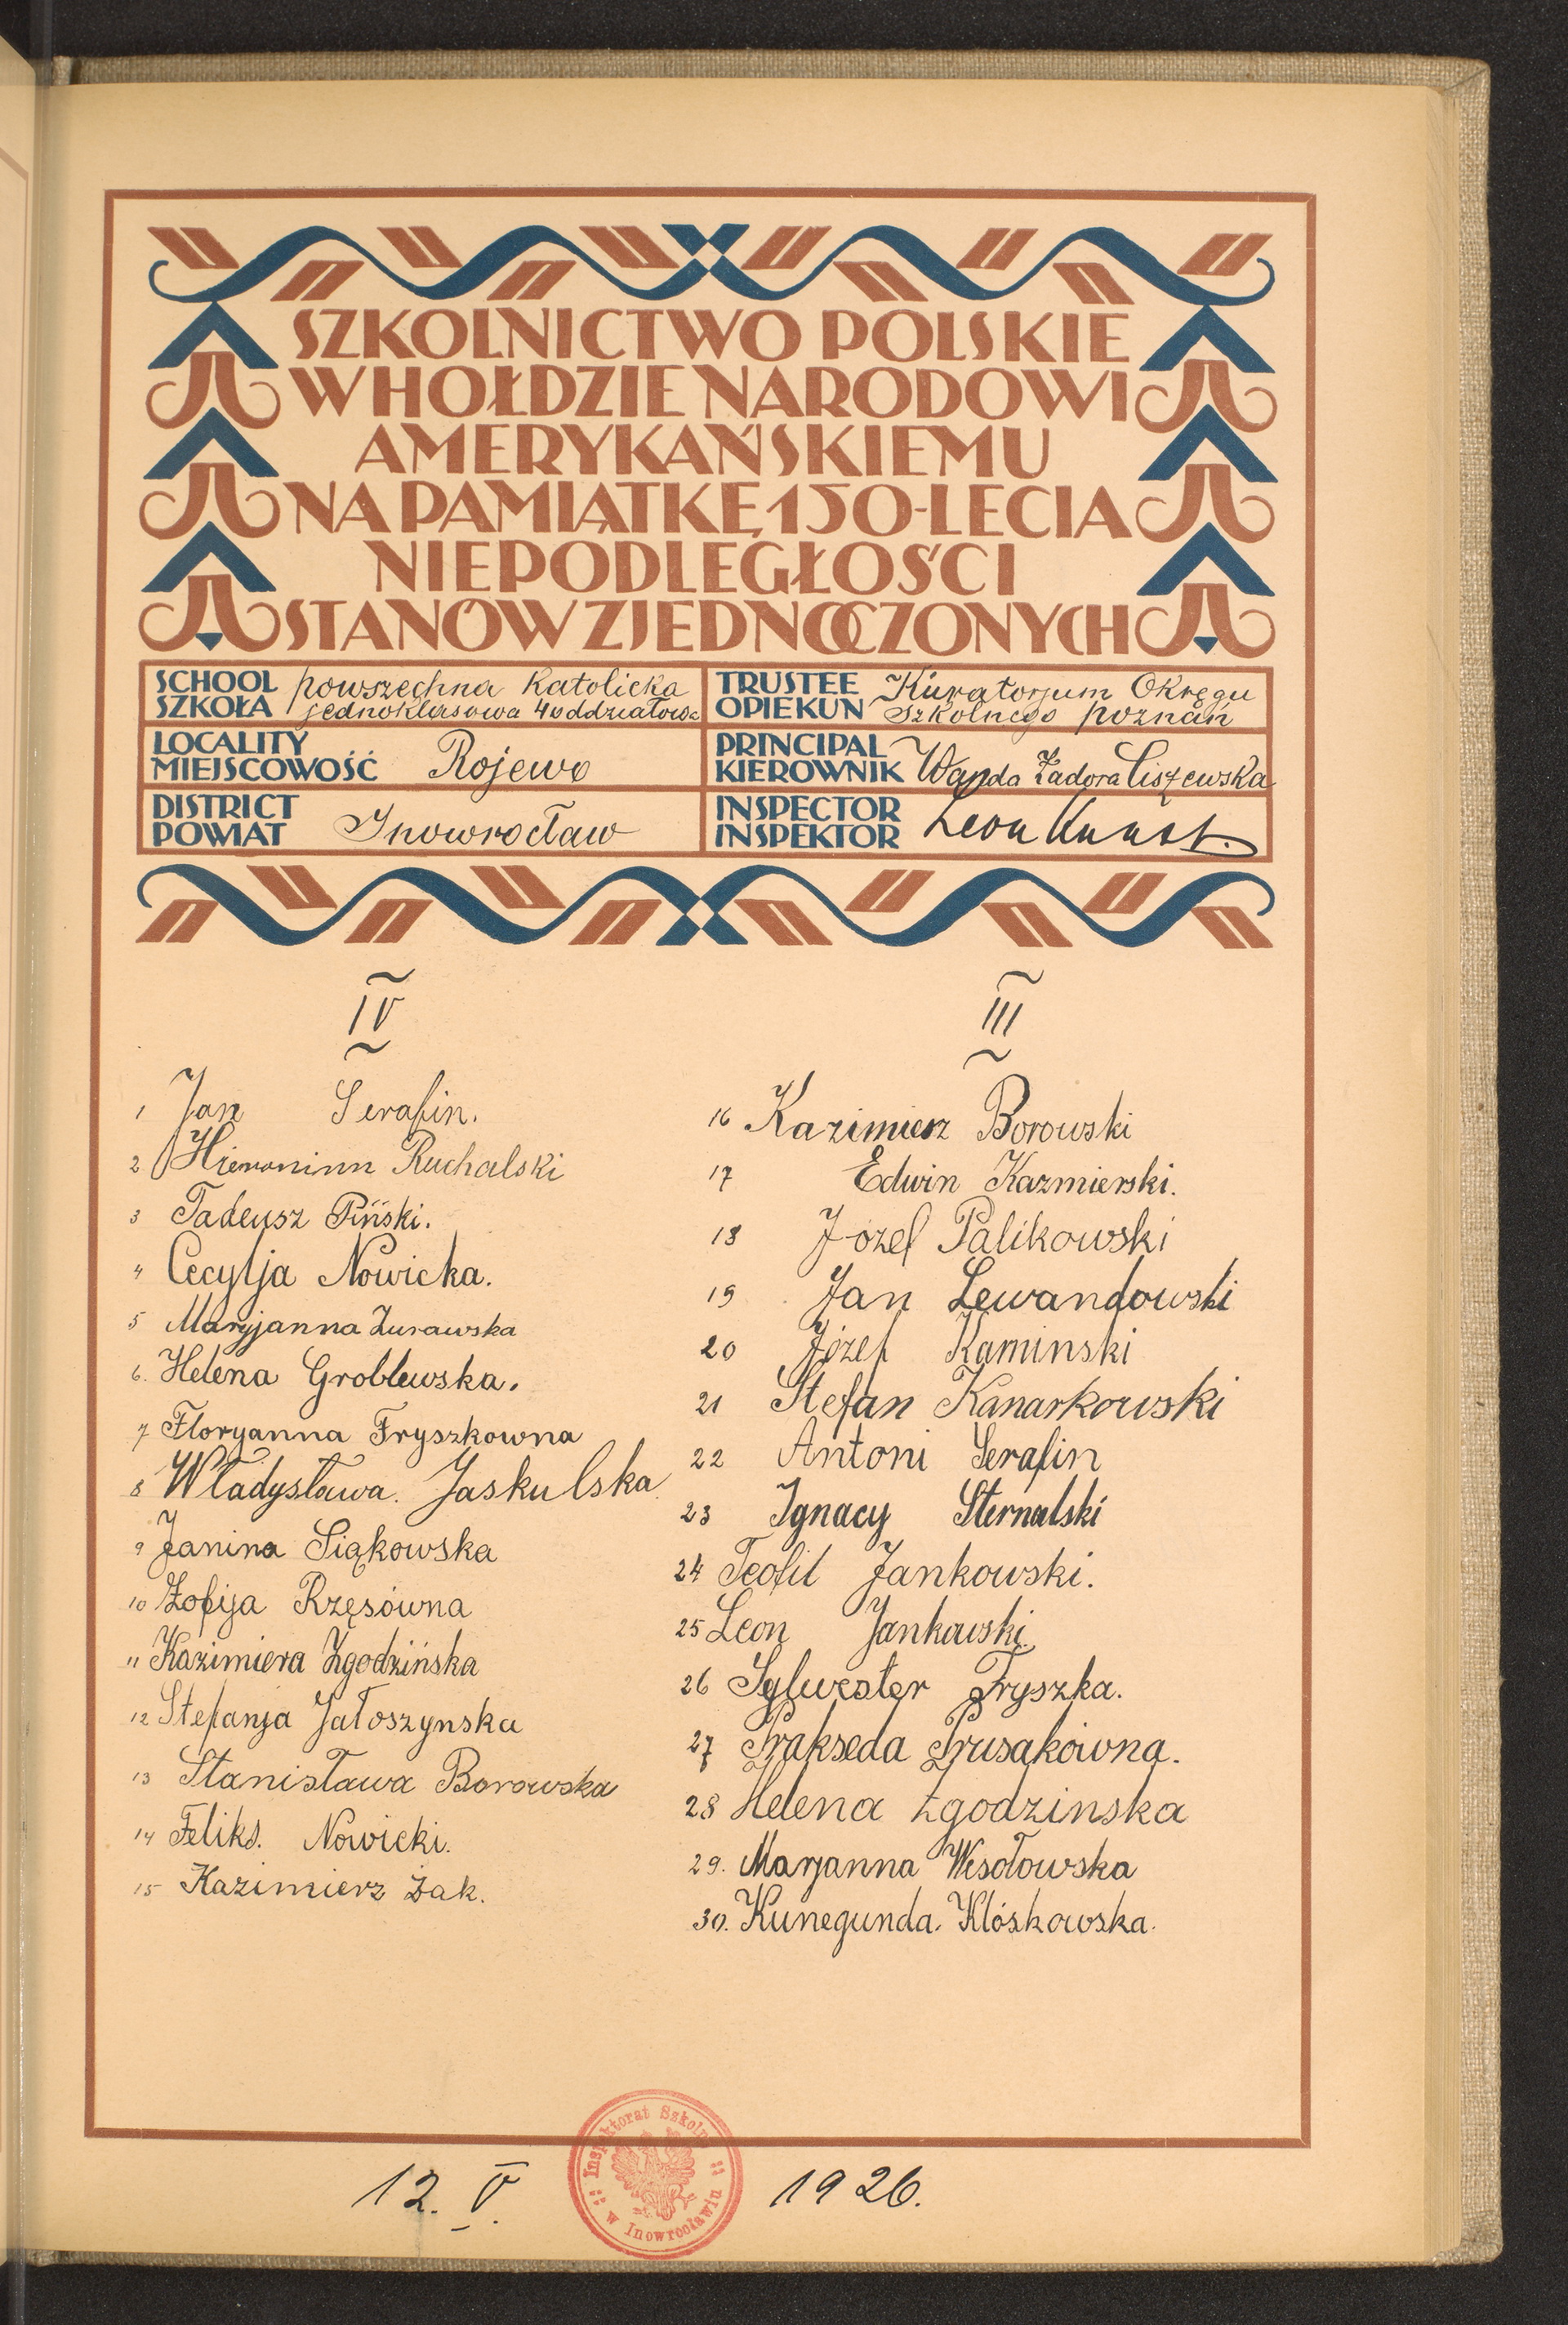 SZKOLNICTWO POLSKIE
W HOŁDZIE NARODOWI
AMERYKAŃSKIEMU
NA PAMIĄTKĘ 150-LECIA
NIEPODLEGŁOŚCI
STANÓW ZJEDNOCZONYCH
SCHOOL
SZKOŁA
powszechna Katolicka
jednoklasowa 4oddziałowa
TRUSTEE
OPIEKUN
Kuratorjum Okręgu
Szkolnego poznań
LOCALITY
MIEJSCOWOŚĆ
Rojewo
PRINCIPAL
KIEROWNIK
Wanda Zadora Ciszewska
DISTRICT
POWIAT
Inowrocław
INSPECTOR
INSPEKTOR
Leon Kunst.
IV
1 Jan Serafin.
2 Hieronimn Ruchalski
3 Tadeusz Piński.
4 Cecylja Nowicka.
5 Maryjanna Zurawska
6. Helena Groblewska.
7 Floryanna Fryszkowna
8 Władysława. Jaskulska
9 Janina Siąkowska
10 Zofija Rzęsówna
11 Kazimiera Zgodzińska
12 Stefanja Jałoszynska
13 Stanisława Borowska
14 Feliks. Nowicki.
15 Kazimierz Żak.
III
16 Kazimierz Borowski
17 Edwin Kazmierski.
18 Józef Palikowski
19 Jan Lewandowski
20 Józef Kaminski
21 Stefan Kanarkowski
22 Antoni Serafin
23 Ignacy Sternalski
24 Teofil Jankowski.
25 Leon Jankowski
26 Sylwester Fryszka.
27 Prakseda Prusakówna.
28 Helena Zgodzinska
29. Marjanna Wesołowska
30. Kunegunda. Klóskowska.
12. V. 1926.
Inspektorat Szkolny
w Inowrocławiu